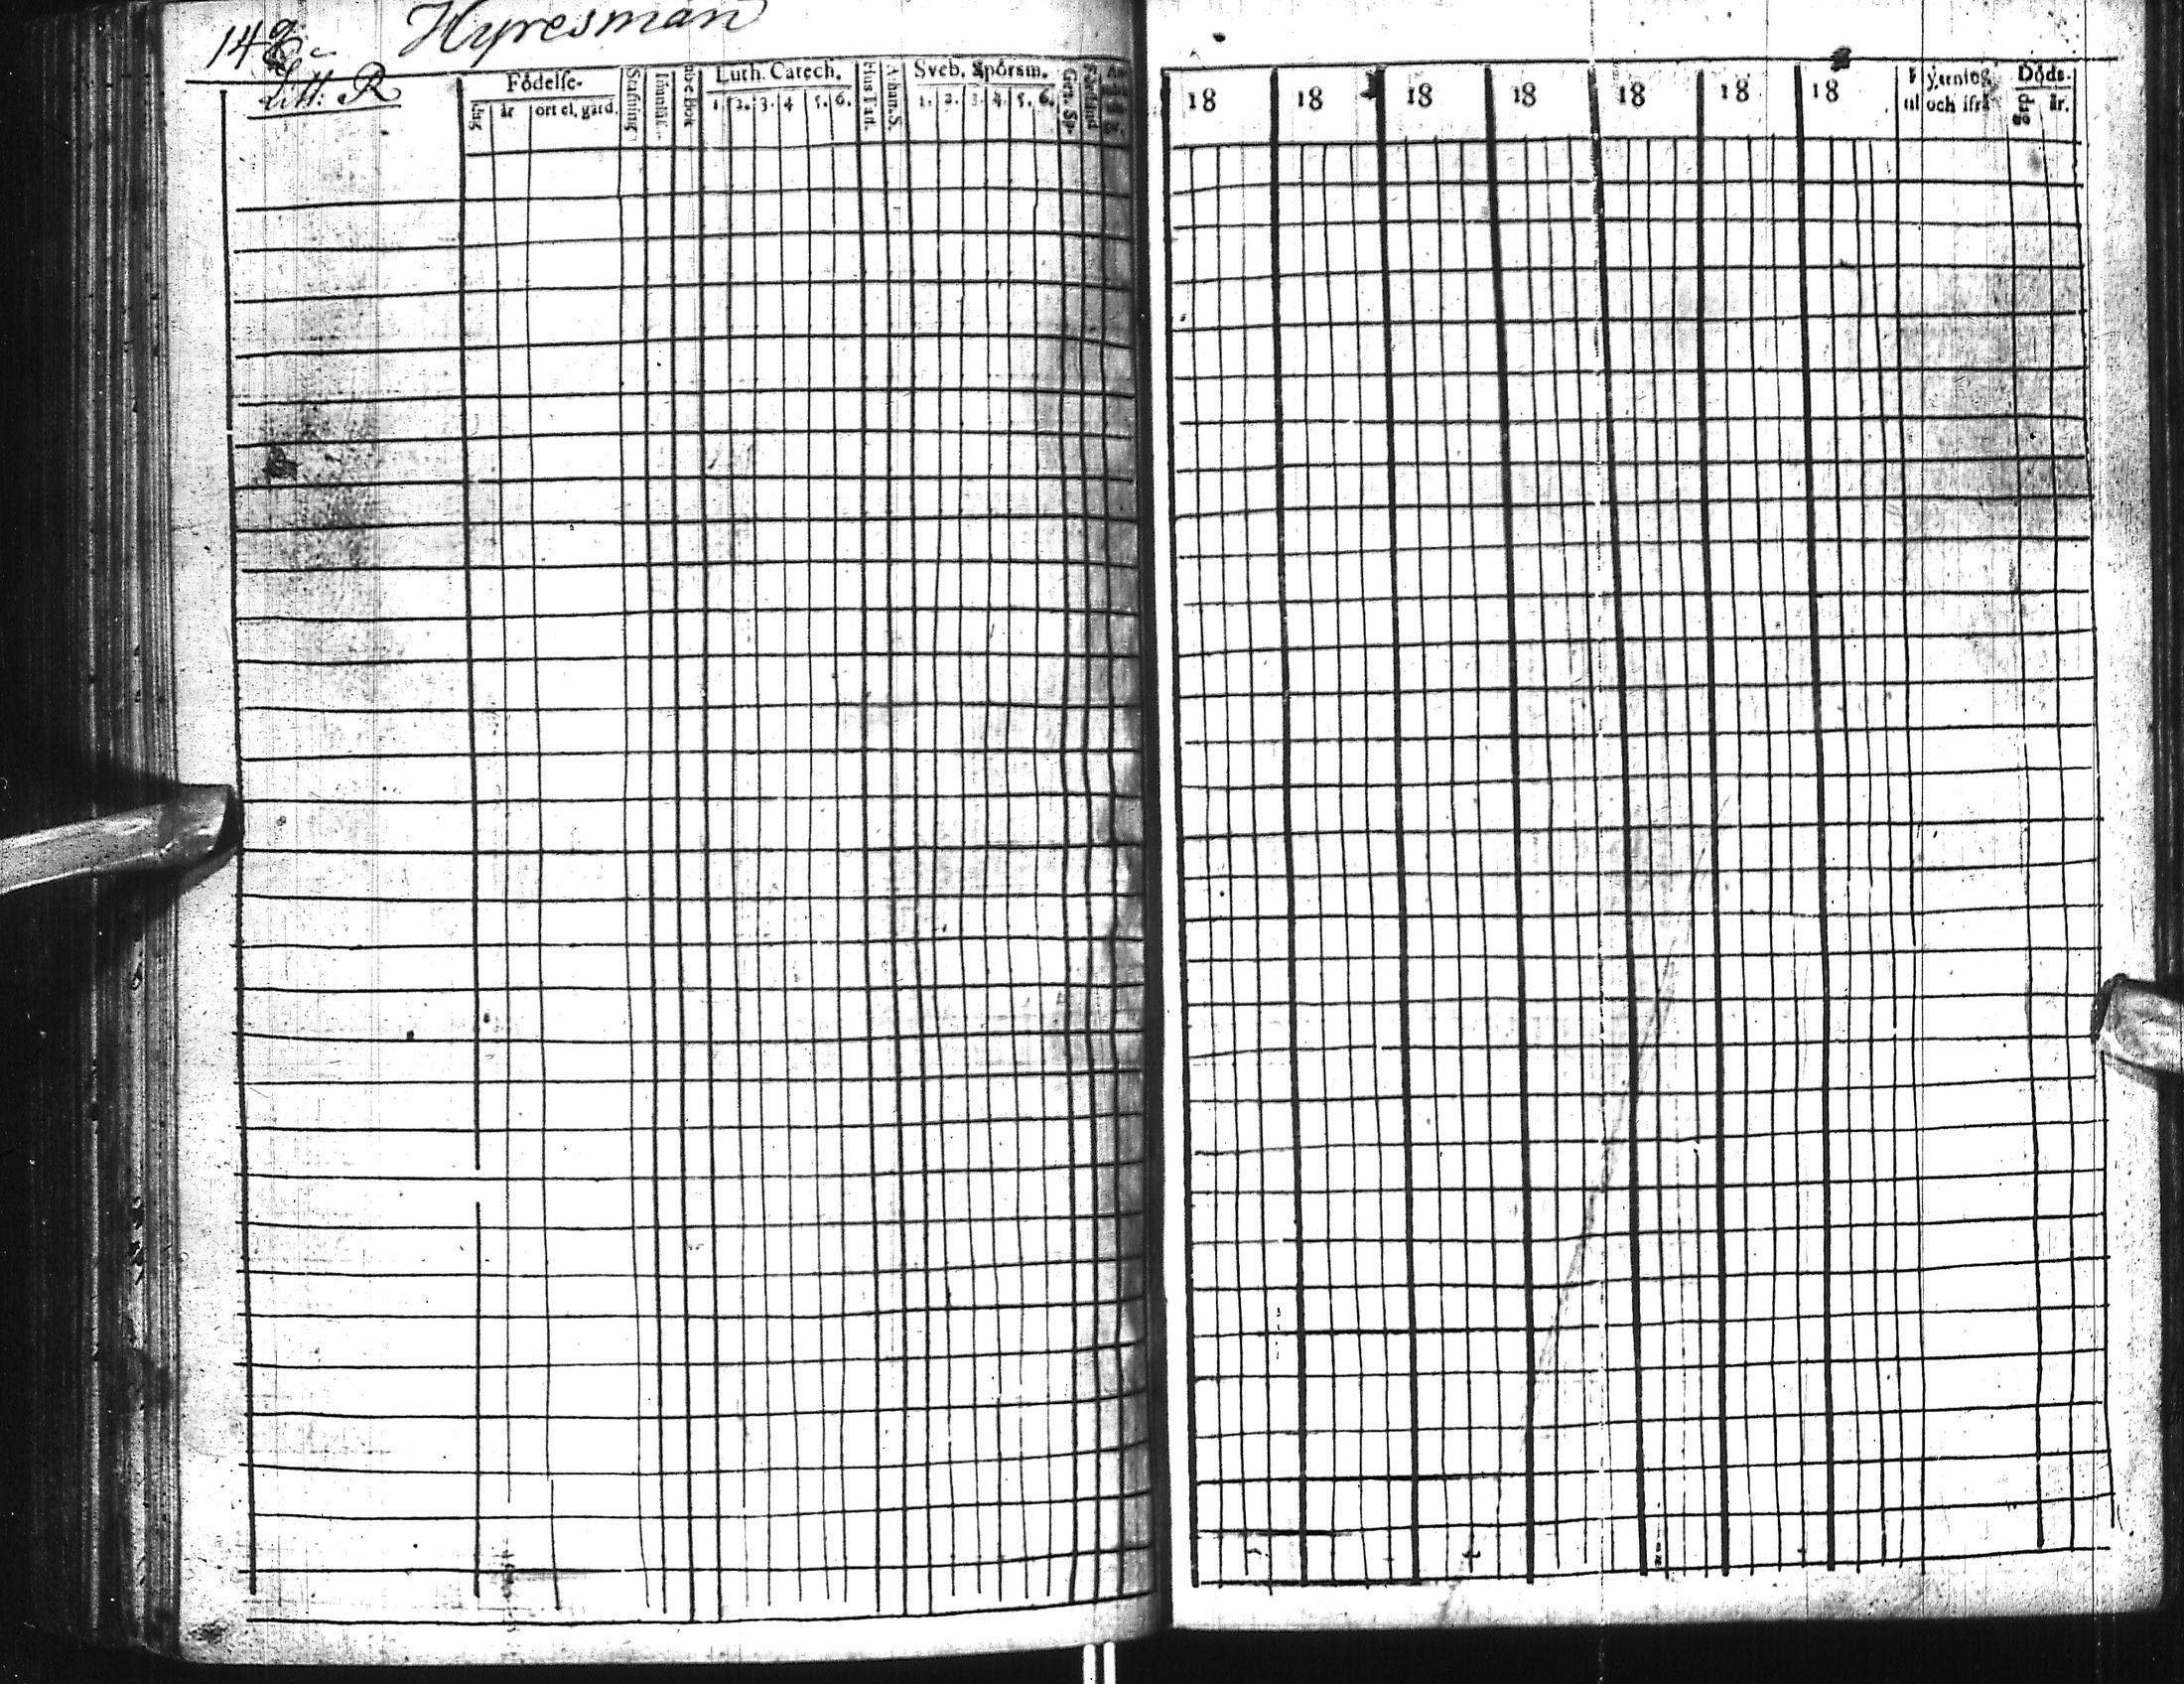 Hyresman
Litt. R
Födelse-
dag
år
ort el. gård.
Stafning
Luth. Catech.
1. 2. 3. 4 5. 6.
Hus Tafl.
Athan. S.
Sveb. Spörsm.
1. 2. 3. 4. 5. 6.
Förstånd
18 18 18 18 18 18 18
Flyttning
til och ifrå
Döds-
dag
år.